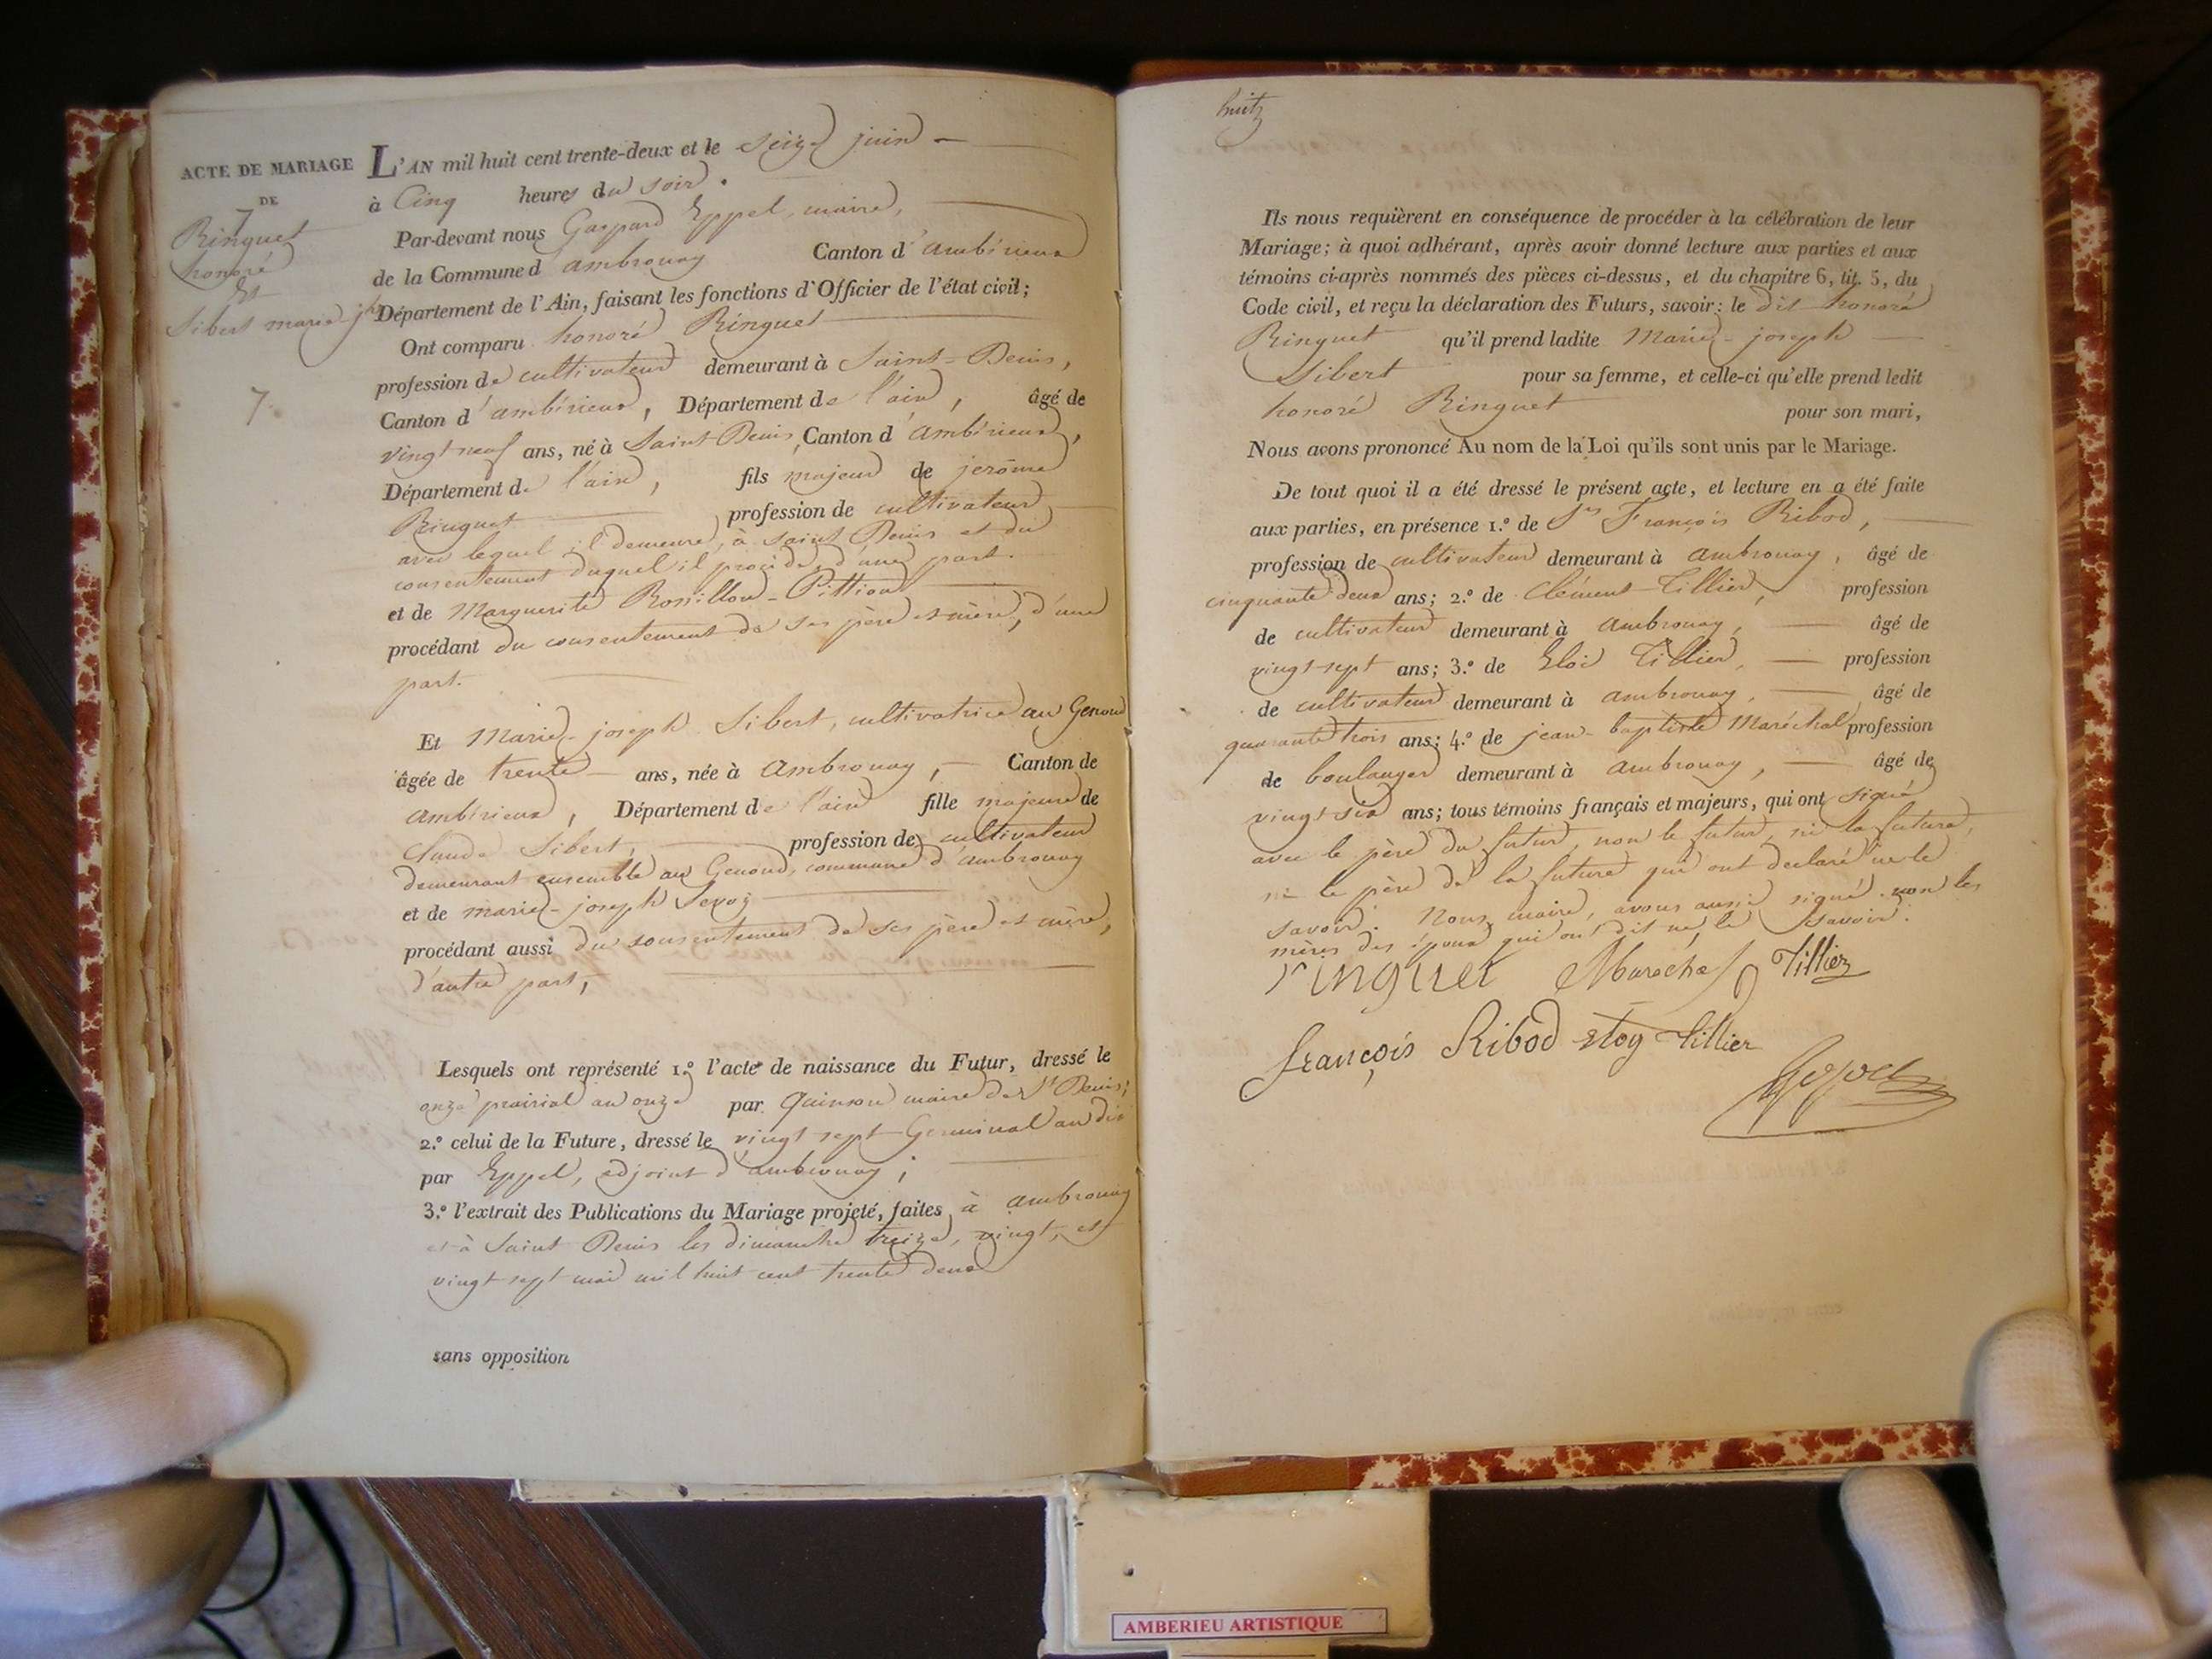 ACTE DE MARIAGE
DE
7
Ringuet
honoré
Et
Sibert marie jph
7.
L'AN mil huit cent trente-deux et le seize juin
à Cinq heures du soir.
Par-devant nous Gaspard Eppel, maire,
de la Commune d ambronay Canton d'ambérieux
Département de l'Ain, faisant les fonctions d'Officier de l'état civil;
Ont comparu honoré Ringuet
profession de cultivateur demeurant à Saint-Denis,
Canton d'ambérieux, Département de l'ain, âgé de
vingt neuf ans, né à Saint Denis, Canton d'ambérieux,
Département de l'ain, fils majeur de jerôme
Ringuet profession de cultivateur
avec lequel il demeure, à saint Denis et du
consentement duquel il procède, d'une part.
et de Marguerite Rossillon-Pittion
procédant du consentement de ses père et mère, d'une
part.
Et Marie-joseph Sibert, cultivatrice au Genoud
âgée de trente ans, née à Ambronay, Canton de
ambérieux, Département de l'ain fille majeure de
Claude Sibert, profession de cultivateur
demeurant ensemble au Genoud, commune d'ambronay
et de marie-joseph
procédant aussi du consentement de ses père et mère,
d'autre part,
Lesquels ont représenté 1.º l'acte de naissance du Futur, dressé le
onze prairial an onze par Quinson maire de St Denis;
2.º celui de la Future, dressé le vingt sept Germinal an dix
par Eppel, adjoint d'ambronay;
3.º l'extrait des Publications du Mariage projeté, faites à ambronay
et à Saint Denis les dimanche treize, vingt, et
vingt sept mai mil huit cent trente deux
sans opposition
huit
Ils nous requièrent en conséquence de procéder à la célébration de leur
Mariage; à quoi adhérant, après avoir donné lecture aux parties et aux
témoins ci-après nommés des pièces ci-dessus, et du chapitre 6, tit. 5, du
Code civil, et reçu la déclaration des Futurs, savoir: le dit honoré
Ringuet qu'il prend ladite Marie-joseph
Sibert pour sa femme, et celle-ci qu'elle prend ledit
honoré Ringuet pour son mari,
Nous avons prononcé Au nom de la Loi qu'ils sont unis par le Mariage.
De tout quoi il a été dressé le présent acte, et lecture en a été faite
aux parties, en présence 1.º de François Ribod,
profession de cultivateur demeurant à ambronay, âgé de
cinquante deux ans; 2.º de Clément Tillier, profession
de cultivateur demeurant à ambronay, âgé de
vingt-sept ans; 3.º de Eloi Tillier, profession
de cultivateur demeurant à ambronay, âgé de
quarante trois ans; 4.º de jean-baptiste Maréchal profession
de boulanger demeurant à ambronay, âgé de
vingt six ans; tous témoins français et majeurs, qui ont signé
avec le père du futur, non le futur, ni la future,
ni le père de la future qui ont declaré ne le
savoir. Nous, maire, avons aussi signé. non les
mères des époux qui ont dit ne le savoir.
ringuet Maréchal Tillier
françois Ribod eloy tillier